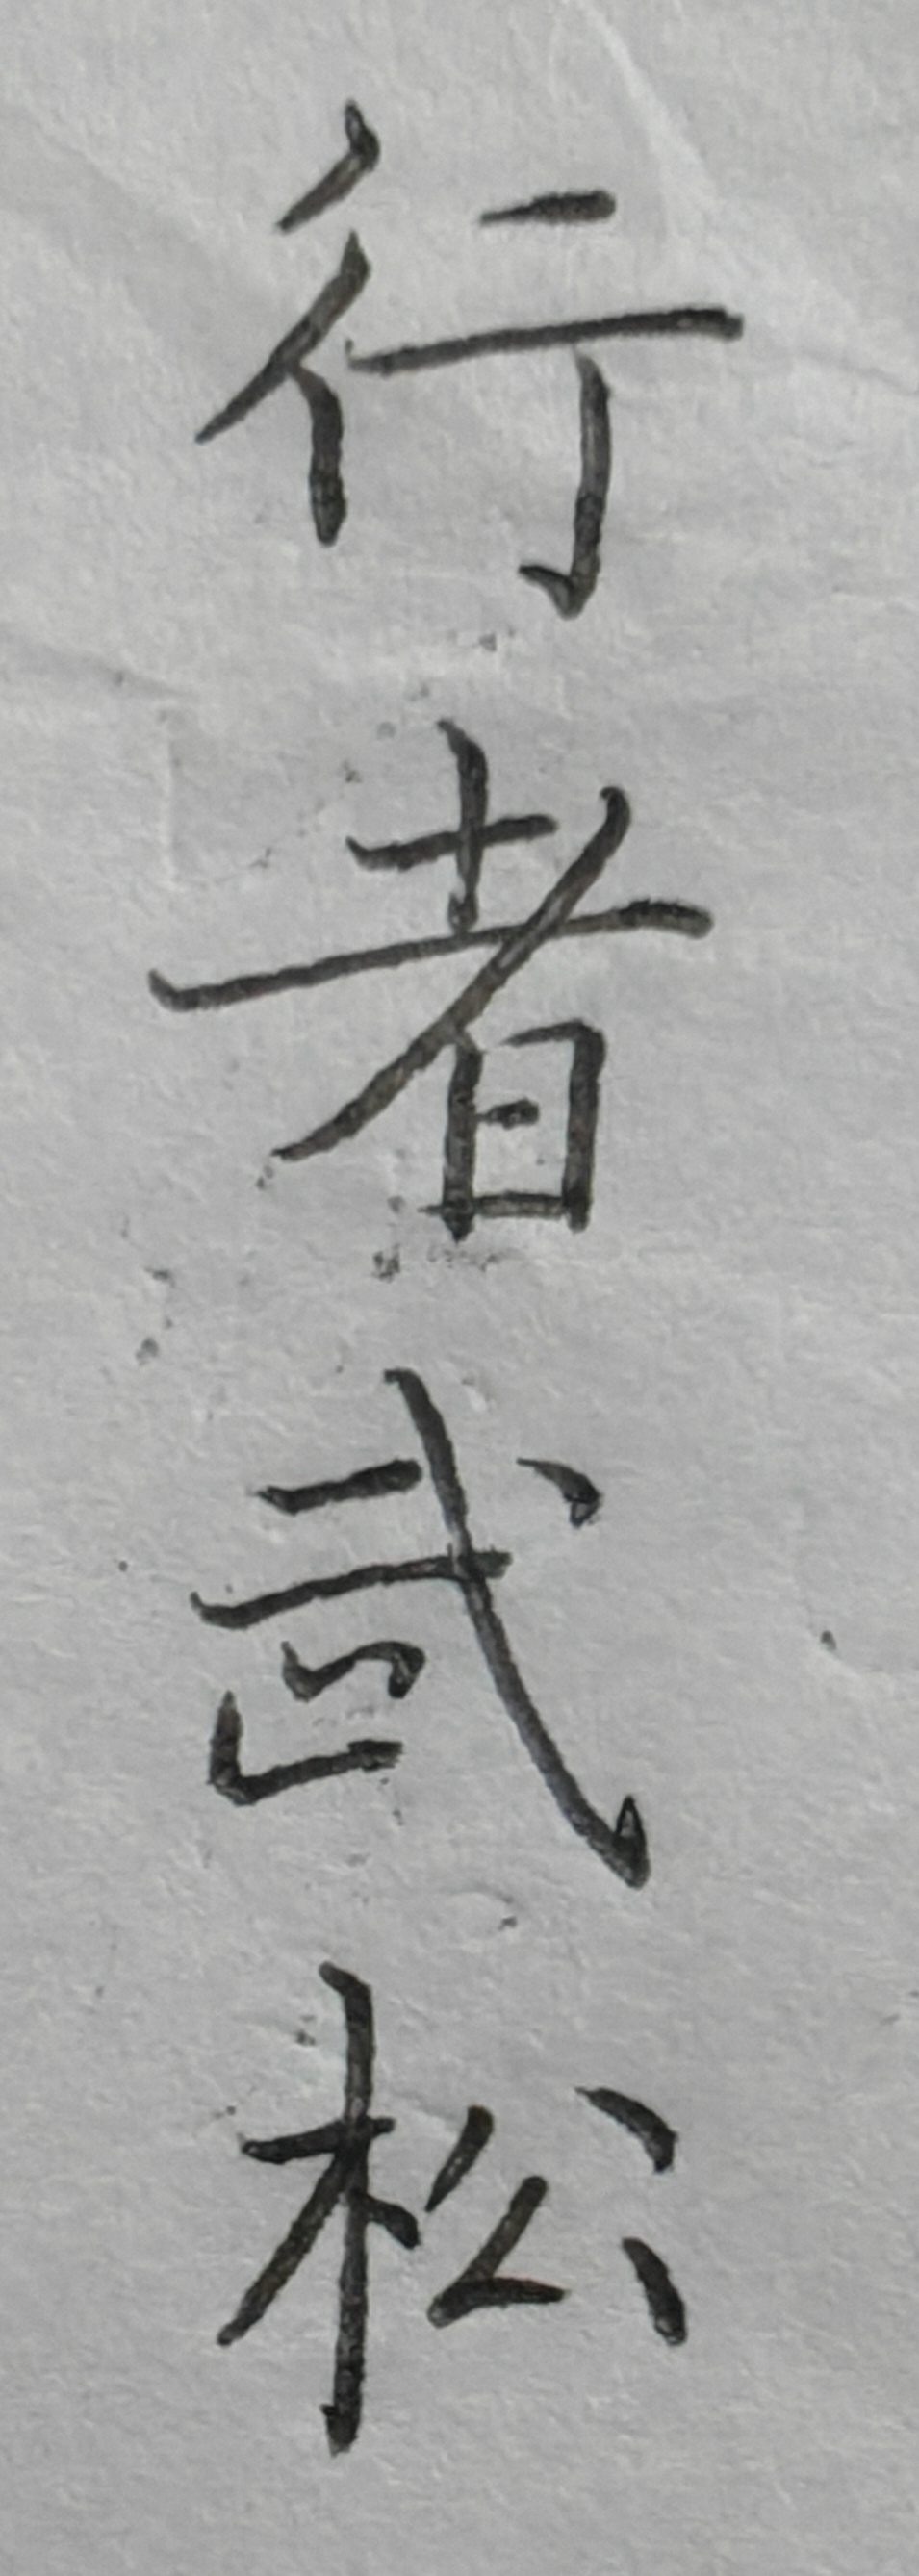 行者武松